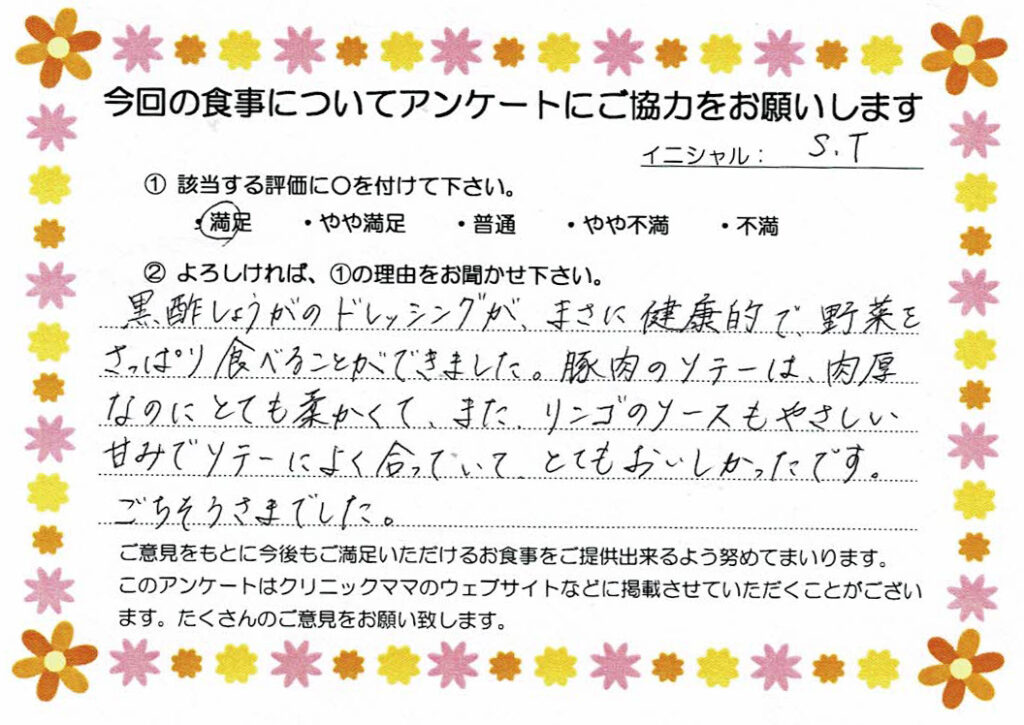 今回の食事についてアンケートにご協力をお願いします
イニシャル： S.T
① 該当する評価に〇を付けて下さい。
・満足 ・やや満足 ・普通 ・やや不満 ・不満
② よろしければ、①の理由をお聞かせ下さい。
黒酢しょうがのドレッシングが、まさに健康的で、野菜を
さっぱり食べることができました。豚肉のソテーは、肉厚
なのにとても柔かくて、また、リンゴのソースもやさしい
甘みでソテーによく合っていて、とてもおいしかったです。
ごちそうさまでした。
ご意見をもとに今後もご満足いただけるお食事をご提供出来るよう努めてまいります。
このアンケートはクリニックママのウェブサイトなどに掲載させていただくことがござい
ます。たくさんのご意見をお願い致します。